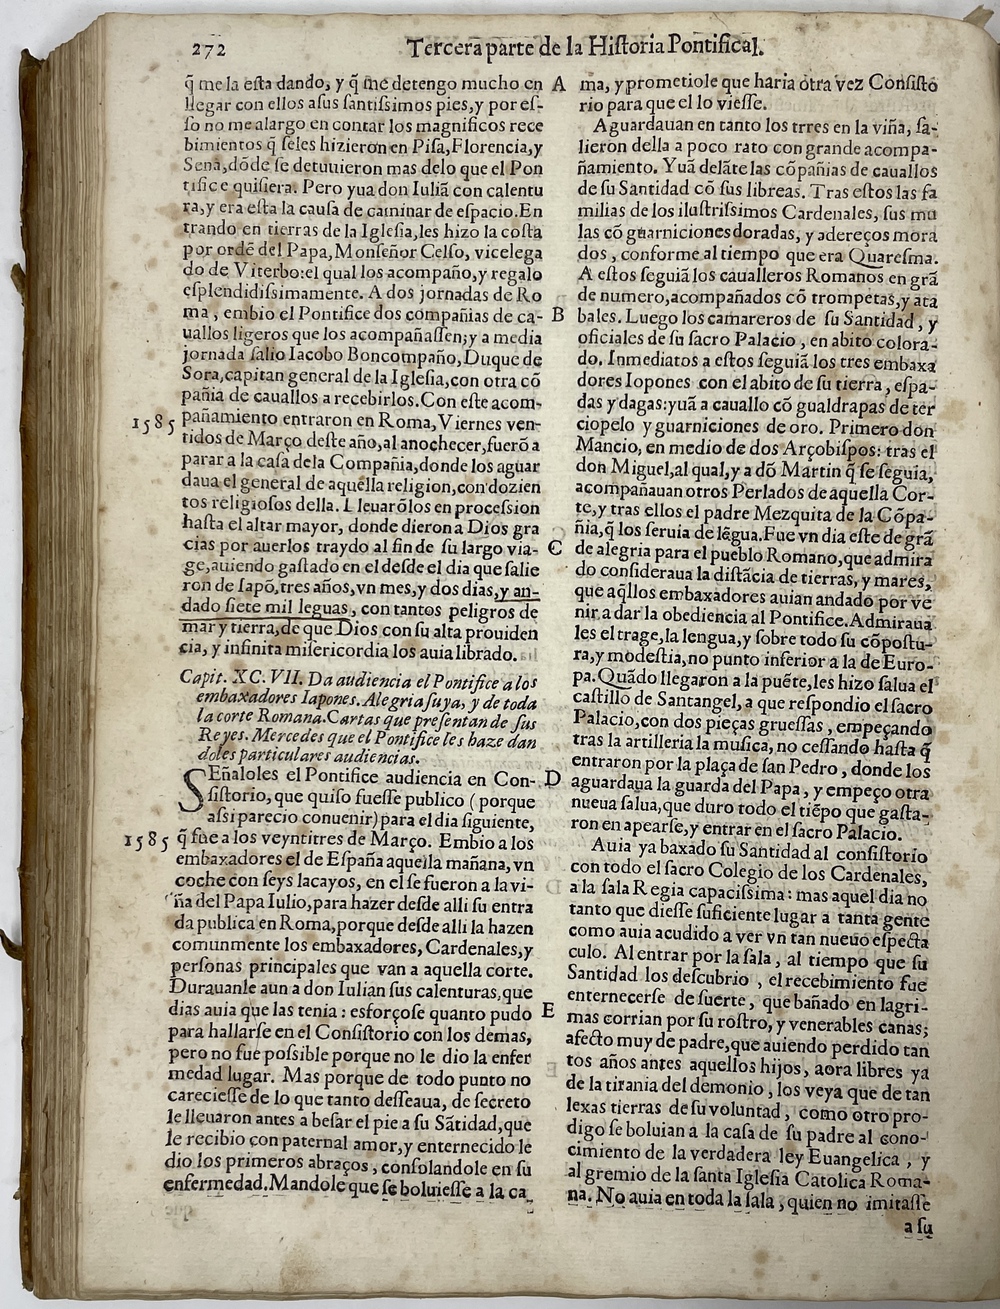 272
Tercera parte de la Hiſtoria Pontifical.
q̃ me la eſta dando, y q̃ me detengo mucho en
llegar con ellos aſus ſantiſsimos pies, y por eſ-
ſo no me alargo en contar los magnificos rece
bimientos q̃ ſeles hizieron en Piſa, Florencia, y
Sena, dõde ſe detuuieron mas delo que el Pon
tifice quiſiera. Pero yua don Iuliã con calentu
ra, y era eſta la cauſa de caminar de eſpacio. En
trando en tierras de la Igleſia, les hizo la coſta
por ordẽ del Papa, Monſeñor Celſo, vicelega
do de Viterbo: el qual los acompaño, y regalo
eſplendidiſsimamente. A dos jornadas de Ro
ma, embio el Pontifice dos compañias de ca-
uallos ligeros que los acompañaſſen; y a media
jornada ſalio Iacobo Boncompaño, Duque de
Sora, capitan general de la Igleſia, con otra cõ
pañia de cauallos a recebirlos. Con eſte acom-
1585
pañamiento entraron en Roma, Viernes ven-
tidos de Março deſte año, al anochecer, fuerõ a
parar a la caſa dela Compañia, donde los aguar
daua el general de aquella religion, con dozien
tos religioſos della. Lleuarõlos en proceſsion
haſta el altar mayor, donde dieron a Dios gra
cias por auerlos traydo al fin de ſu largo via-
ge, auiendo gaſtado en el deſde el dia que ſalie
ron de Iapõ, tres años, vn mes, y dos dias, y an-
dado ſiete mil leguas, con tantos peligros de
mar y tierra, de que Dios con ſu alta prouiden
cia, y infinita miſericordia los auia librado.
Capit. XC. VII. Da audiencia el Pontifice a los
embaxadores Iapones. Alegria ſuya, y de toda
la corte Romana. Cartas que preſentan de ſus
Reyes. Mercedes que el Pontifice les haze dan
doles particulares audiencias.
SEñaloles el Pontifice audiencia en Con-
ſiſtorio, que quiſo fueſſe publico (porque
aſsi parecio conuenir) para el dia ſiguiente,
1585
q̃ fue a los veyntitres de Março. Embio a los
embaxadores el de Eſpaña aquella mañana, vn
coche con ſeys lacayos, en el ſe fueron a la vi-
ña del Papa Iulio, para hazer deſde alli ſu entra
da publica en Roma, porque deſde alli la hazen
comunmente los embaxadores, Cardenales, y
perſonas principales que van a aquella corte.
Durauanle aun a don Iulian ſus calenturas, que
dias auia que las tenia: esforçoſe quanto pudo
para hallarſe en el Conſiſtorio con los demas,
pero no fue poſsible porque no le dio la enfer
medad lugar. Mas porque de todo punto no
carecieſſe de lo que tanto deſſeaua, de ſecreto
le lleuaron antes a beſar el pie a ſu Sãtidad, que
le recibio con paternal amor, y enternecido le
dio los primeros abraços, conſolandole en ſu
enfermedad. Mandole que ſe boluieſſe a la ca
A
B
C
D
E
ma, y prometiole que haria otra vez Conſiſto
rio para que el lo vieſſe.
Aguardauan en tanto los tres en la viña, ſa-
lieron della a poco rato con grande acompa-
ñamiento. Yuã delãte las cõpañias de cauallos
de ſu Santidad cõ ſus libreas. Tras eſtos las fa
milias de los iluſtriſsimos Cardenales, ſus mu
las cõ guarniciones doradas, y adereços mora
dos, conforme al tiempo que era Quareſma.
A eſtos ſeguiã los caualleros Romanos en grã
de numero, acompañados cõ trompetas, y ata
bales. Luego los camareros de ſu Santidad, y
oficiales de ſu ſacro Palacio, en abito colora-
do. Inmediatos a eſtos ſeguiã los tres embaxa
dores Iopones con el abito de ſu tierra, eſpa-
das y dagas: yuã a cauallo cõ gualdrapas de ter
ciopelo y guarniciones de oro. Primero don
Mancio, en medio de dos Arçobiſpos: tras el
don Miguel, al qual, y a dõ Martin q̃ ſe ſeguia,
acompañauan otros Perlados de aquella Cor-
te, y tras ellos el padre Mezquita de la Cõpa-
ñia, q̃ los ſeruia de lẽgua. Fue vn dia eſte de grã
de alegria para el pueblo Romano, que admira
do conſideraua la diſtãcia de tierras, y mares,
que aq̃llos embaxadores auian andado por ve
nir a dar la obediencia al Pontifice. Admiraua
les el trage, la lengua, y ſobre todo ſu cõpoſtu-
ra, y modeſtia, no punto inferior a la de Euro-
pa. Quãdo llegaron a la puẽte, les hizo ſalua el
caſtillo de Santangel, a que reſpondio el ſacro
Palacio, con dos pieças grueſſas, empeçando
tras la artilleria la muſica, no ceſſando haſta q̃
entraron por la plaça de ſan Pedro, donde los
aguardaua la guarda del Papa, y empeço otra
nueua ſalua, que duro todo el tiẽpo que gaſta-
ron en apearſe, y entrar en el ſacro Palacio.
Auia ya baxado ſu Santidad al conſiſtorio
con todo el ſacro Colegio de los Cardenales,
a la ſala Regia capaciſsima: mas aquel dia no
tanto que dieſſe ſuficiente lugar a tanta gente
como auia acudido a ver vn tan nueuo eſpecta
culo. Al entrar por la ſala, al tiempo que ſu
Santidad los deſcubrio, el recebimiento fue
enternecerſe de ſuerte, que bañado en lagri-
mas corrian por ſu roſtro, y venerables canas;
afecto muy de padre, que auiendo perdido tan
tos años antes aquellos hijos, aora libres ya
de la tirania del demonio, los veya que de tan
lexas tierras de ſu voluntad, como otro pro-
digo ſe boluian a la caſa de ſu padre al cono-
cimiento de la verdadera ley Euangelica, y
al gremio de la ſanta Igleſia Catolica Roma-
na. No auia en toda la ſala, quien no imitaſſe
a ſu